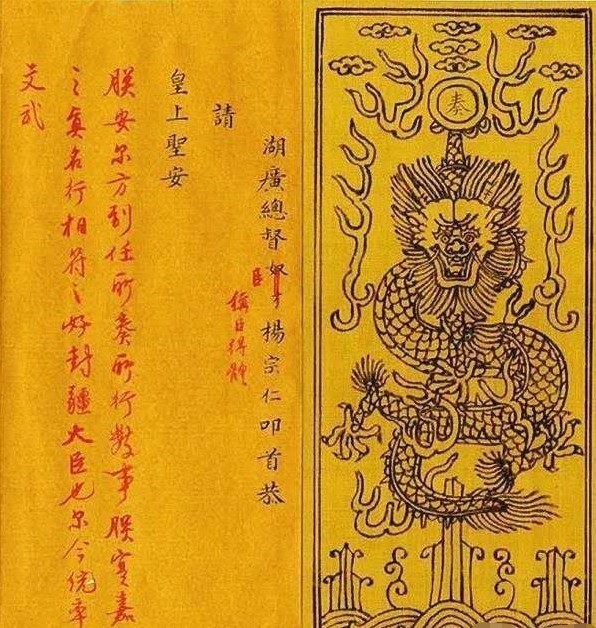 奏
湖廣總督奴才楊宗仁叩首恭
臣
稱臣得體
請
皇上聖安
朕安尔方到任所奏所行數事朕寔嘉
之真名行相符之好封疆大臣也尔今統率
文武